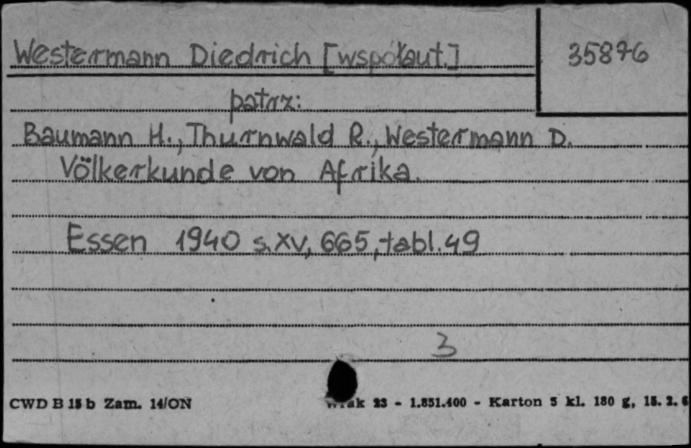 Westermann Diedrich [współaut.] 35876
patrz:
Baumann H., Thurnwald R., Westermann D.
Völkerkunde von Afrika.
Essen 1940 s.XV, 665, tabl. 49
3
CWD B 15 b Zam. 14/ON 23 - 1.851.400 - Karton 5 kl. 180 g, 15. 2. 6